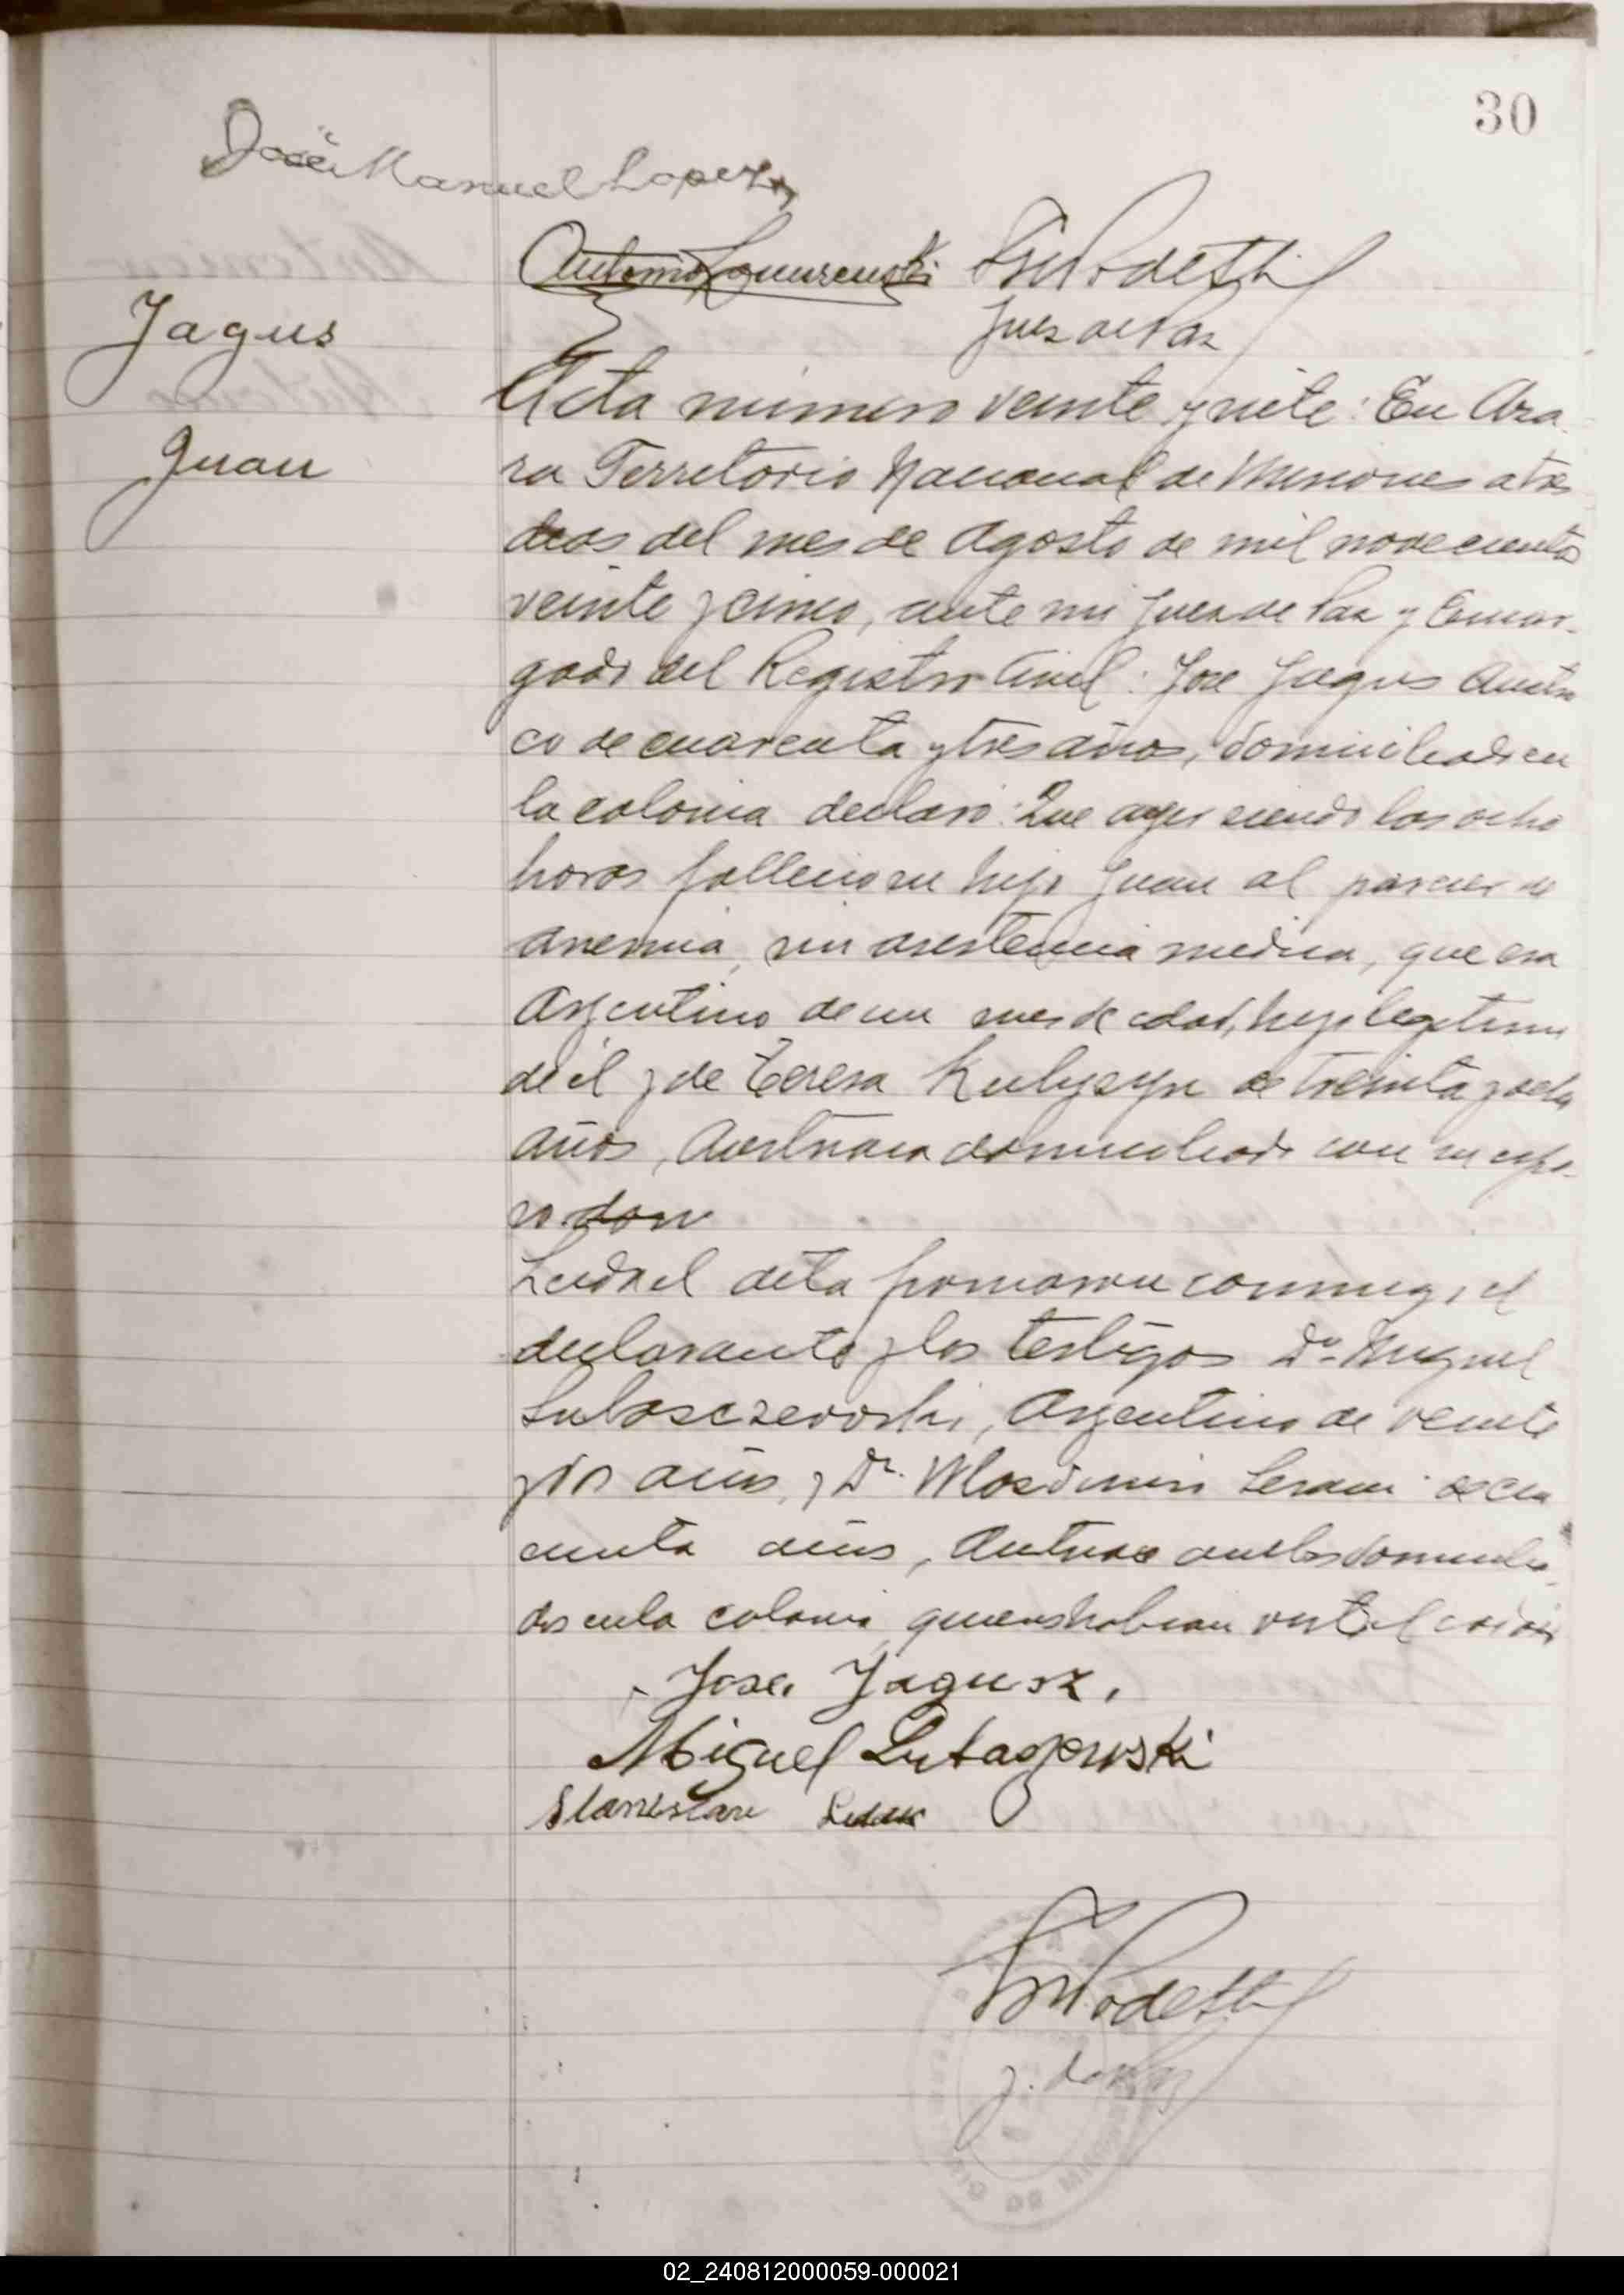 30
José Manuel Lopez
Antonio
Juez de Paz
Jagus
Juan
Acta número veinte y siete: En Aza
ra Territorio Nacional de Misiones a tres
dias del mes de Agosto de mil novecientos
veinte y cinco, ante mi Juez de Paz y Encar-
gado del Registro Civil: Jose Jagus Austria
co de cuarenta y tres años, domiciliado en
la colonia declaró: Que ayer siendo las ocho
horas fallecio su hijo Juan al parecer de
anemia, sin asistencia medica, que era
Argentino de un mes de edad, hijo legitimo
de él y de Teresa Kulyszyn de treinta y ocho
años, Austriaca domiciliada con su espo-
so don
Leida el acta firmaron conmigo, el
declarante y los testigos Dn Miguel
Argentino de veinte
y años, y Dn. de cin
cuenta años, Austriaco ambos domicilia-
dos en la colonia, quienes habian visto el cadaver
Jose Jagusz.
Miguel
Stanislaw
J. de Paz
02_240812000059-000021